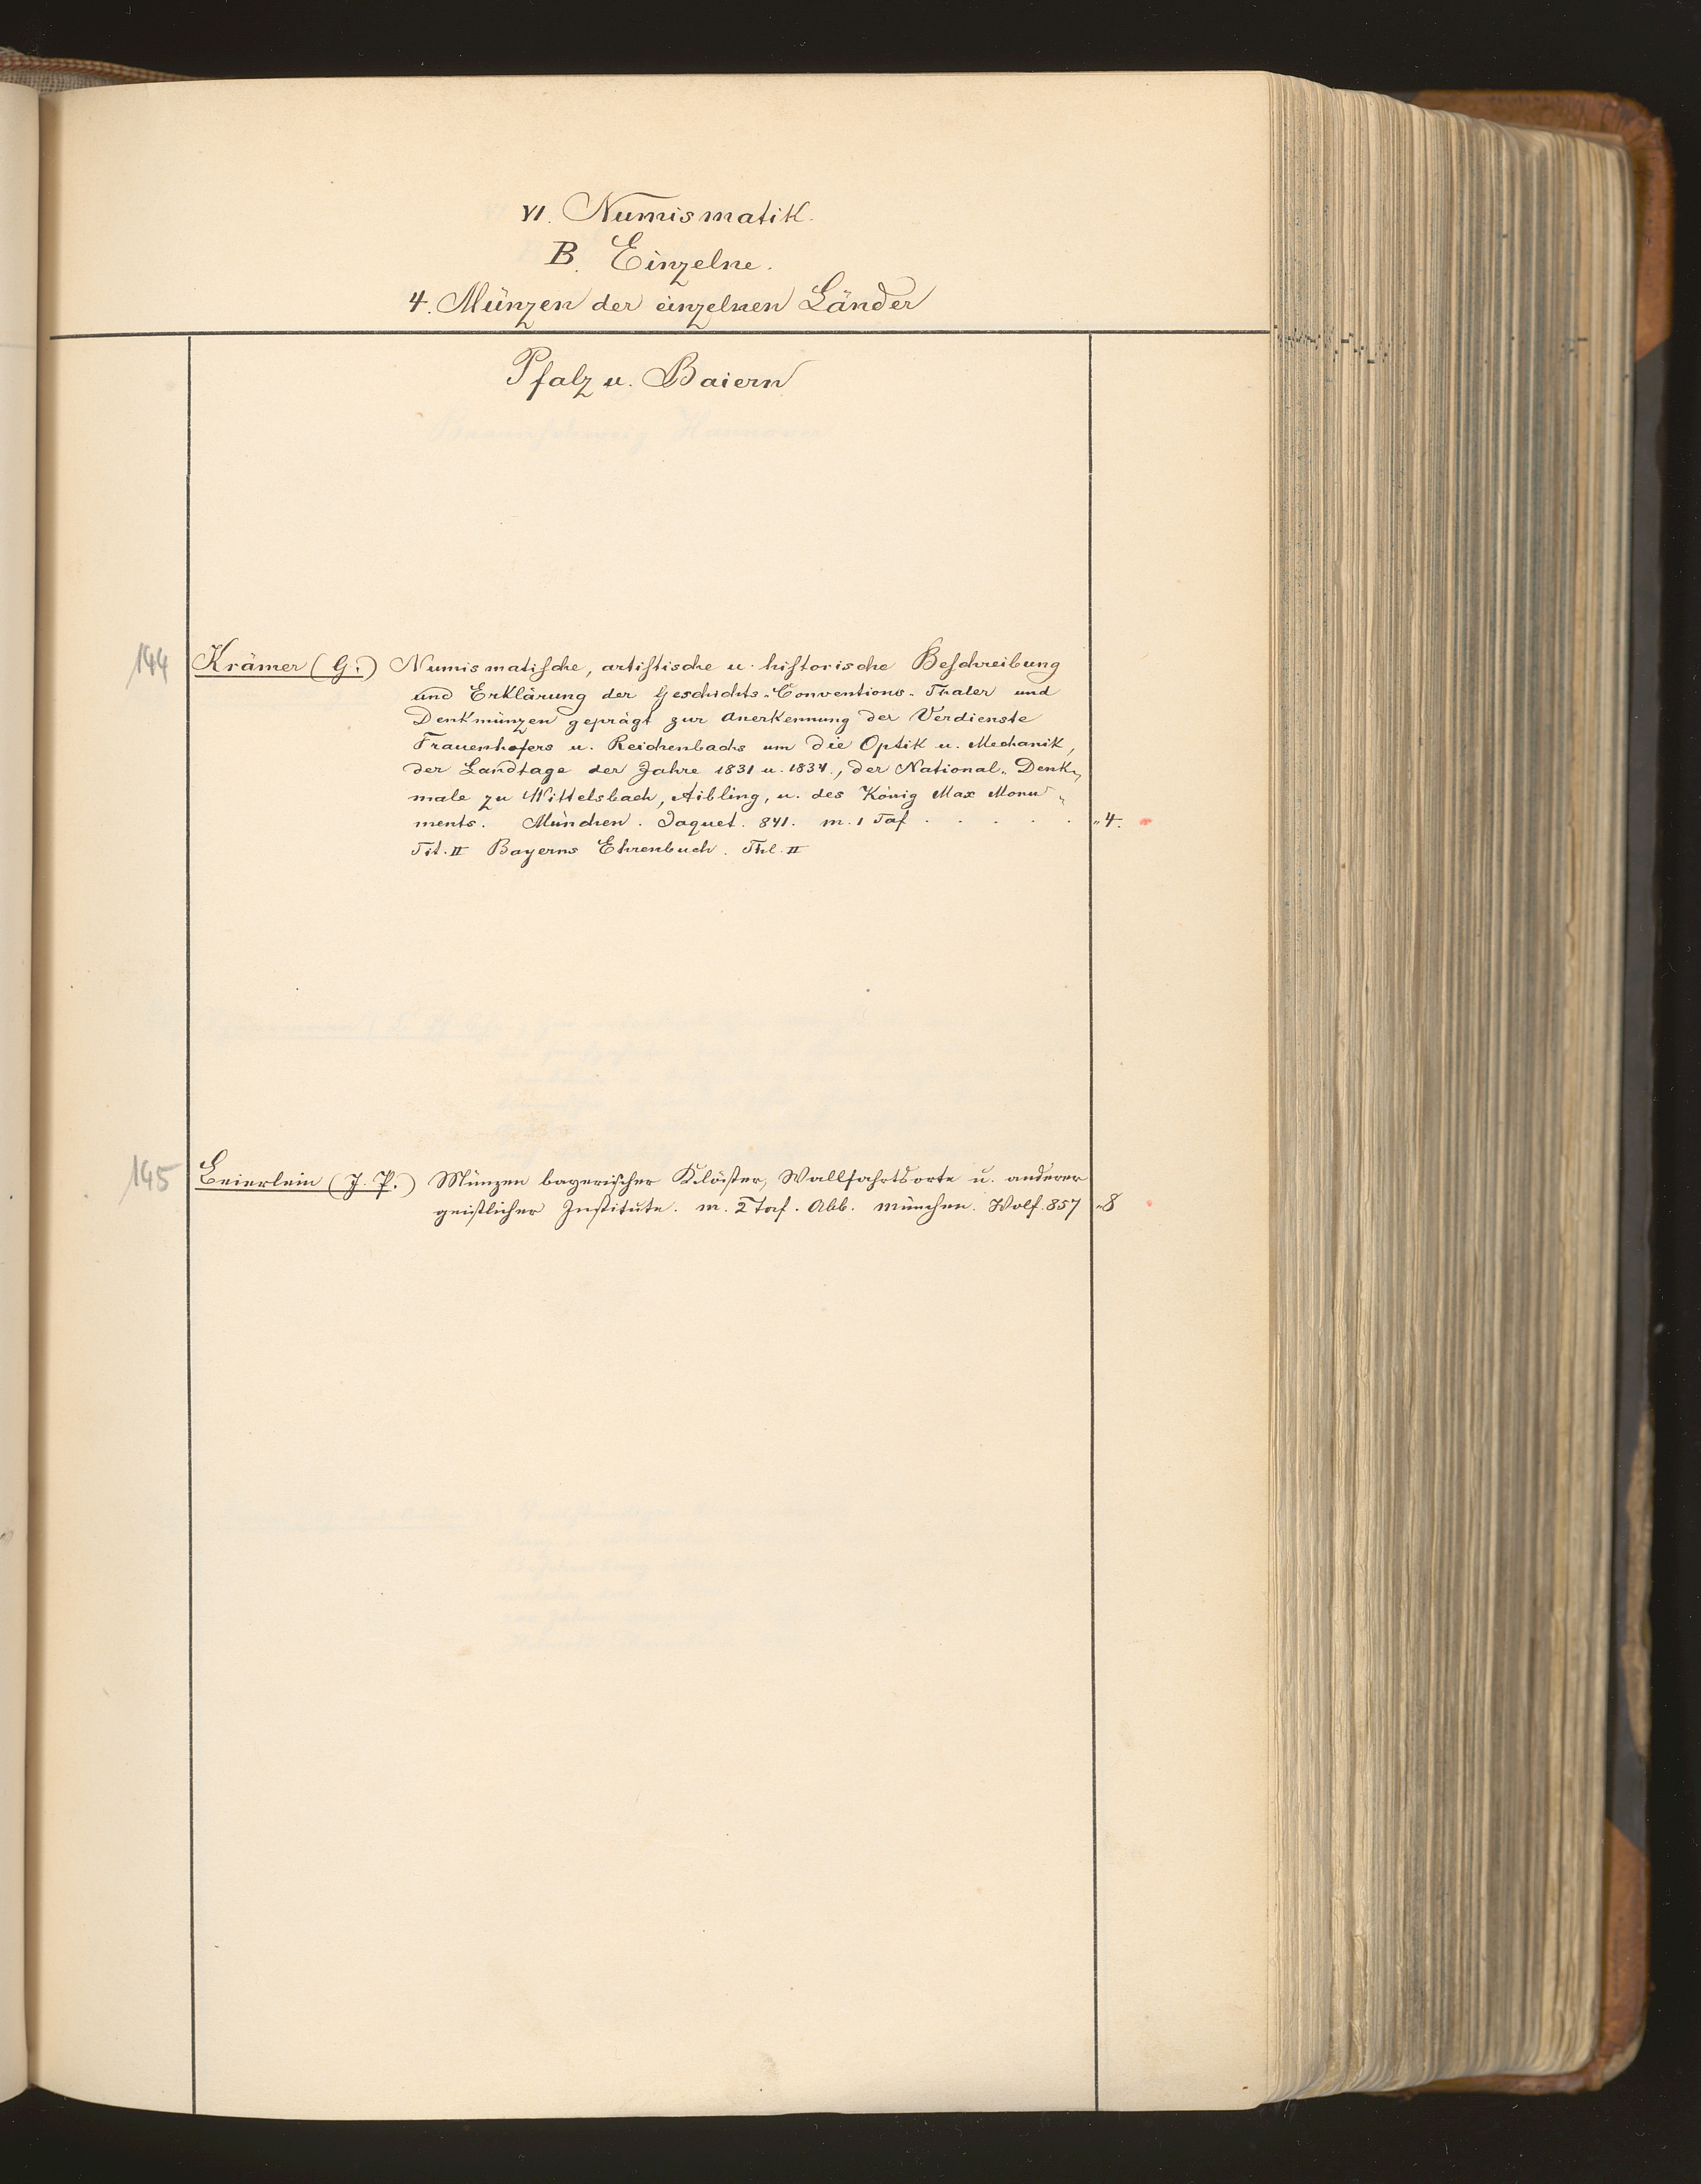 VI. Numismatik.
B. Einzelne.
4. Münzen der einzelnen Länder
Pfalz u. Baiern
144 Krämer (G.) Numismatische, artistische u. historische Beschreibung
und Erklärung der Geschichts-Conventions-Thaler und
Denkmünzen geprägt zur Anerkennung der Verdienste
Frauenhofers u. Reichenbachs um die Optik u. Mechanik,
der Landtage der Jahre 1831 u. 1834., der National-Denk-
male zu Wittelsbach, Aibling, u. des König Max Monu-
ments. München. Jaquet. 841. m. 1 Taf . . . . . "4.
Tit. II Bayerns Ehrenbuch. Thl. II
145 Beierlein (J. P.) Münzen bayerischer Klöster, Wallfahrtsorte u. anderer
geistlicher Institute. m. 2 Taf. Abb. München. Wolf. 857 "8